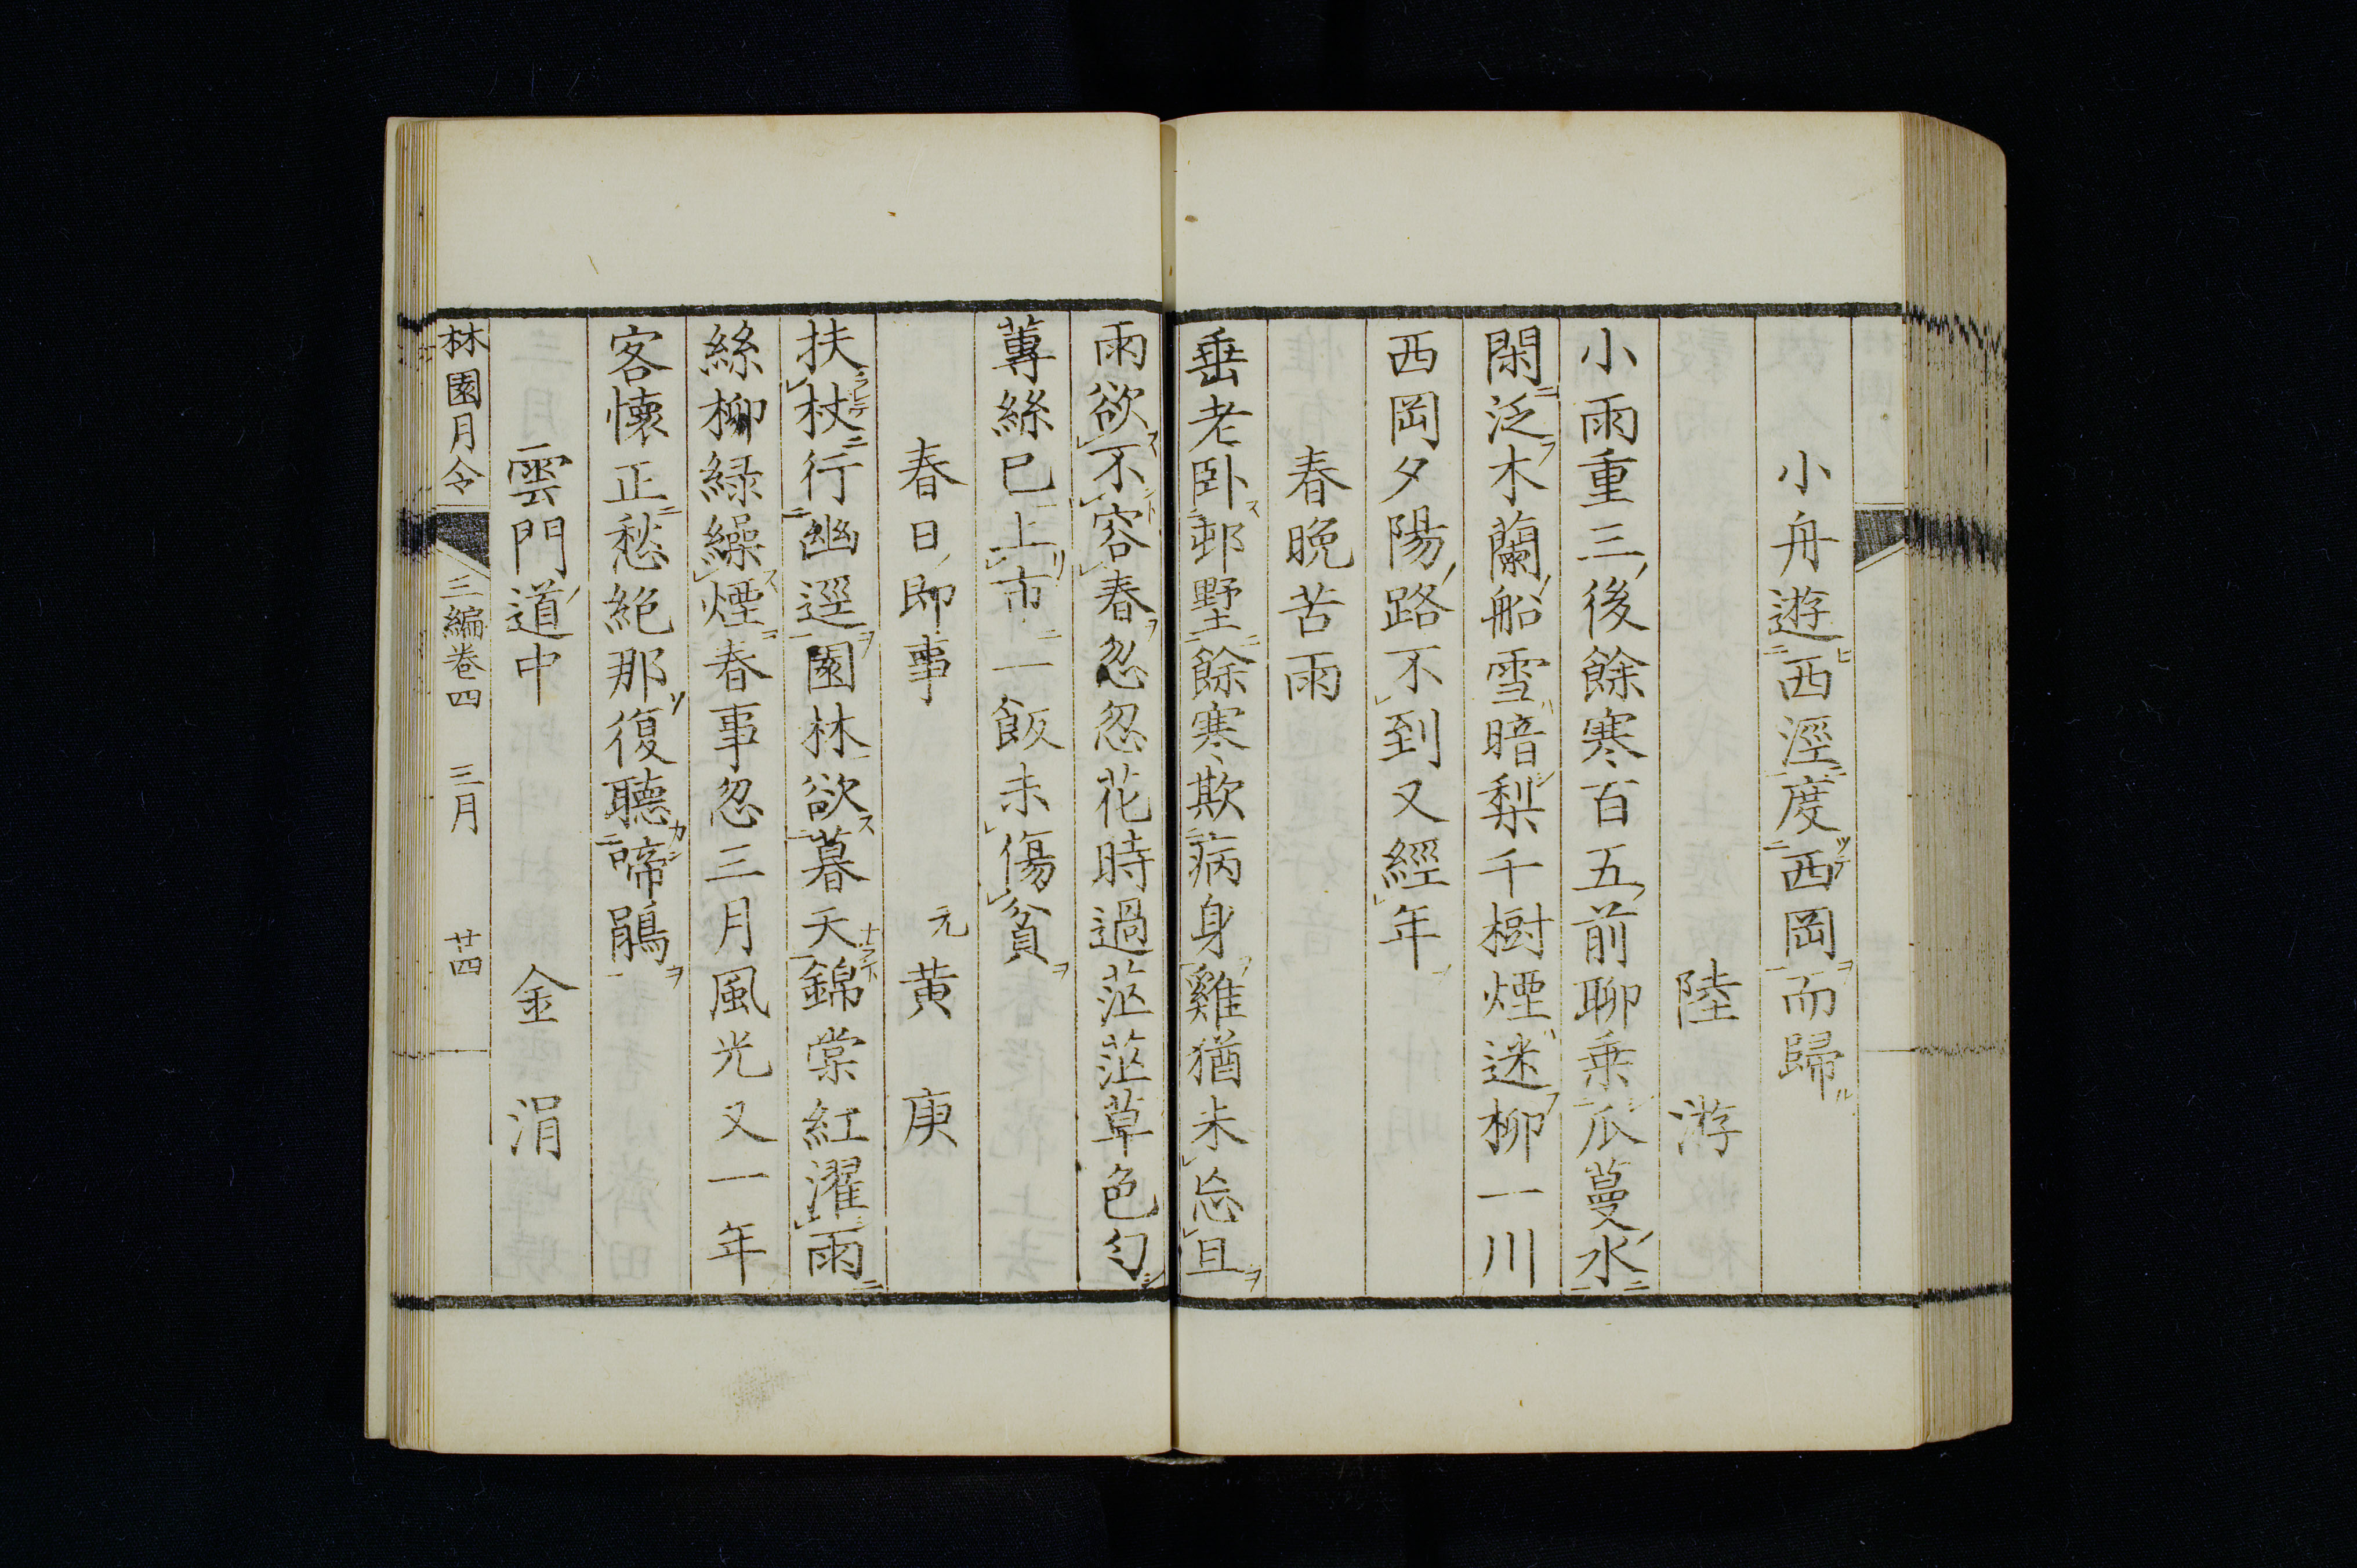 小舟遊西涇度西岡而歸
陸游
小雨重三後餘寒百五前聊乗瓜蔓水
閑泛木蘭船雪暗梨千樹煙迷柳一川
西岡夕陽路不到又經年
春晩苦雨
垂老卧郵墅餘寒欺病身雞猶未忘旦
雨欲不容春忽忽花時過茫茫草色匀
蓴絲已上市一飯未傷貧
春日即事
元黄庚
扶杖行幽逕園林欲暮天錦棠紅濯雨
絲柳緑繰煙春事忽三月風光又一年
客懐正愁絶那復聽啼鵑
雲門道中
金涓
林園月令 三編巻四 三月 廿四